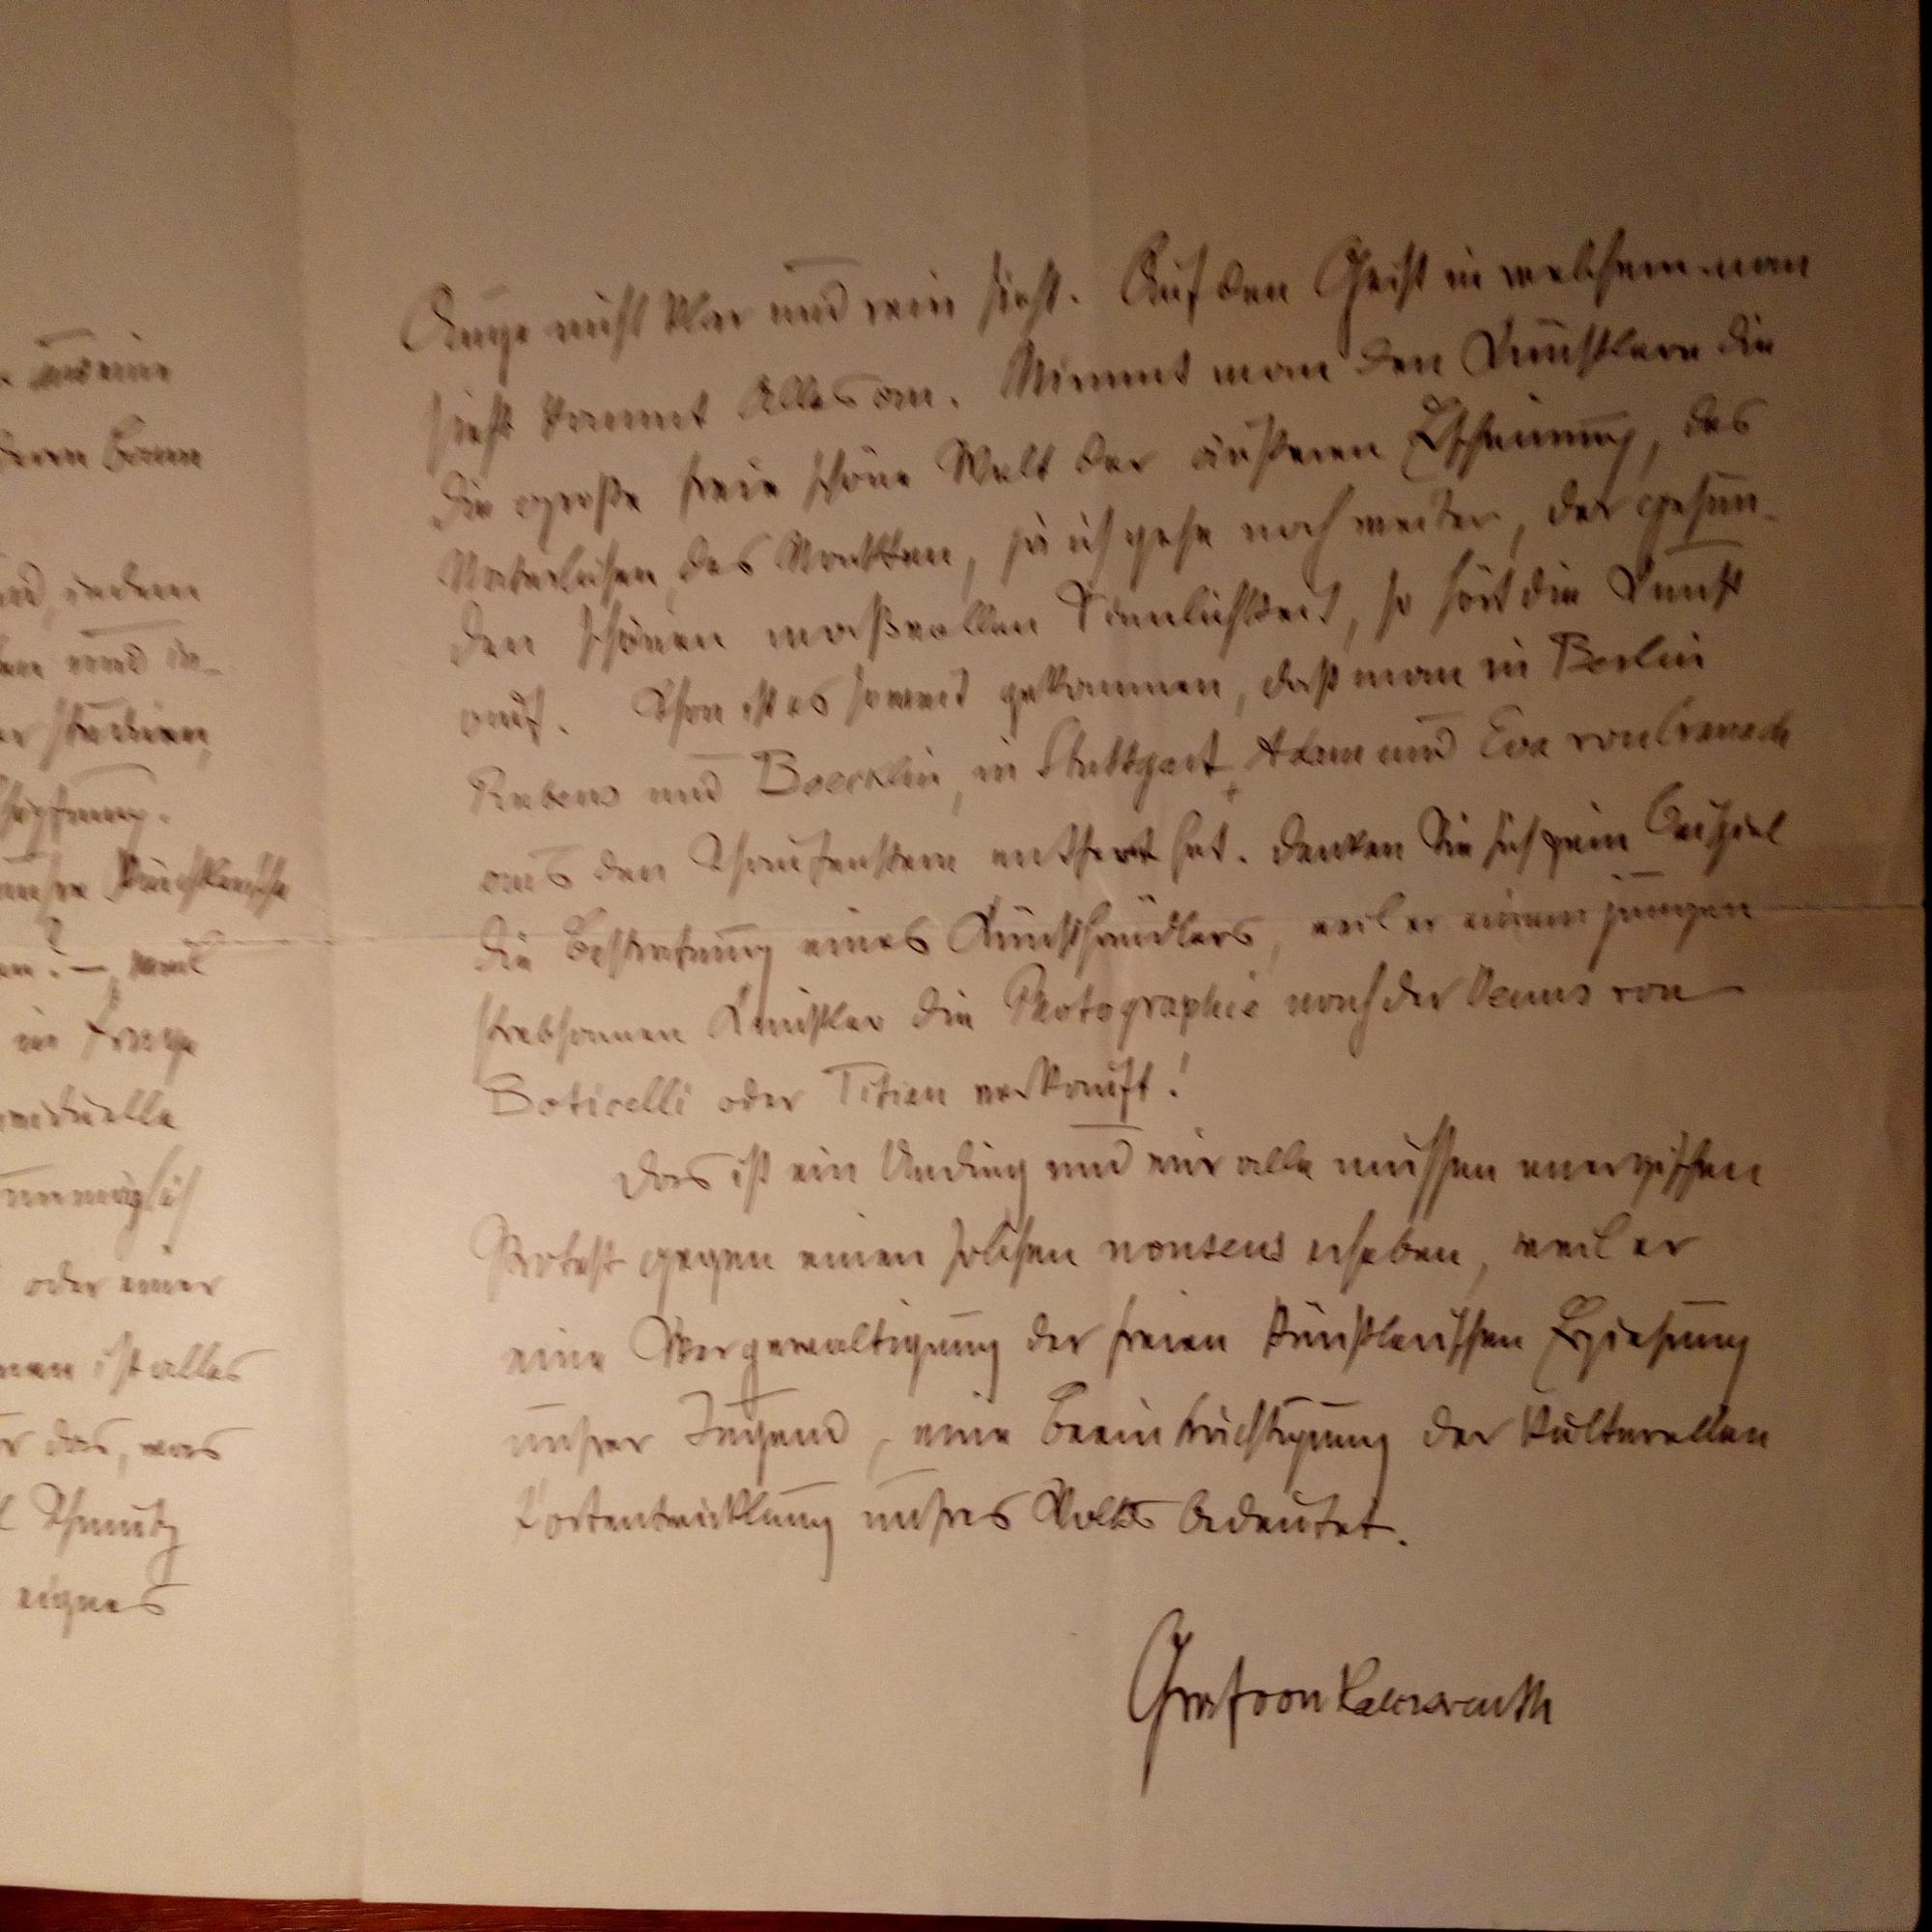 und eine
deren
indem
und in-
er studieren,
Schöpfung.
unsre künstlerische
weil
in Frage
individuelle
unmöglich
oder einer
ist alles
das, was
Schmutz
eignes
Auge nicht klar und rein sieht. Auf den Geist in welchem man
sieht kommt Alles an. Nimmt man den Künstlern die
die große freie schöne Welt der äußeren Erscheinung, des
Natürlichen, des Nackten, ja ich gehe noch weiter, der gesun-
den schönen maßvollen Sinnlichkeit, so hört die Kunst
auf. Schon ist es soweit gekommen, daß man in Berlin
Rubens und Boecklin, in Stuttgart Adam und Eva von Cranach
aus den Schaufenstern entfernt hat. Denken Sie sich zum Beispiel
die Bestrafung eines Kunsthändlers, weil er einem jungen
strebsamen Künstler die Photographie nach der Venus von
Boticelli oder Titian verkauft!
Das ist ein Unding und wir alle müssen energischen
Protest gegen einen solchen nonsens erheben, weil er
eine Vergewaltigung der freien künstlerischen Erziehung
unsrer Jugend, eine Beeinträchtigung der kulturellen
Fortentwicklung unsres Volkes bedeutet.
Graf von Kalckreuth